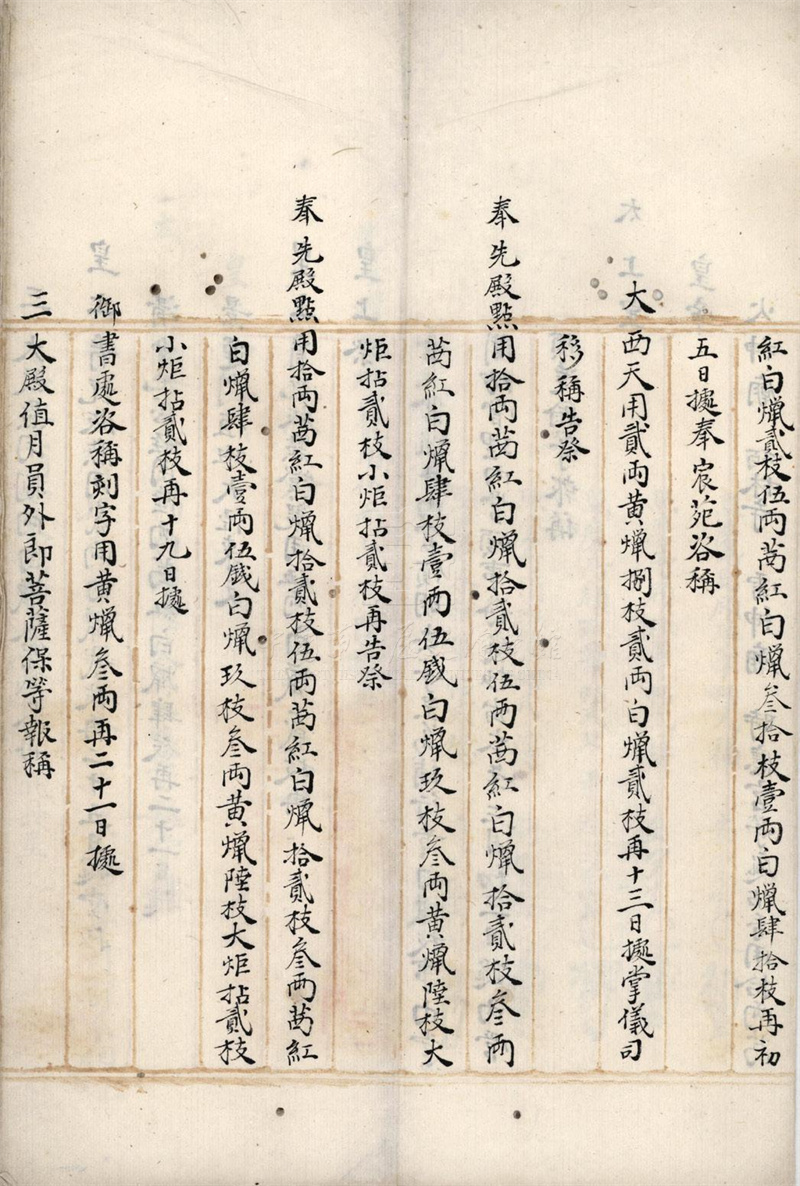 紅白蠟貳枝伍両蒭紅白蠟叁拾枝壹両白蠟肆拾枝再初
五日據奉宸苑咨稱
大西天用貳両黃蠟捌枝貳両白蠟貳枝再十三日據掌儀司
移稱告祭
奉先殿點用拾両蒭紅白蠟拾貳枝伍両蒭紅白蠟拾貳枝叁両
蒭紅白蠟肆枝壹両伍戧白蠟玖枝叁両黃蠟陸枝大
炬拈貳枝小炬拈貳枝再告祭
奉先殿點用拾両蒭紅白蠟拾貳枝伍両蒭紅白蠟拾貳枝叁両蒭紅
白蠟肆枝壹両伍戧白蠟玖枝叁両黃蠟陸枝大炬拈貳枝
小炬拈貳枝再十九日據
御書處咨稱刻字用黃蠟叁両再二十一日據
三大殿值月員外郎菩薩保等報稱